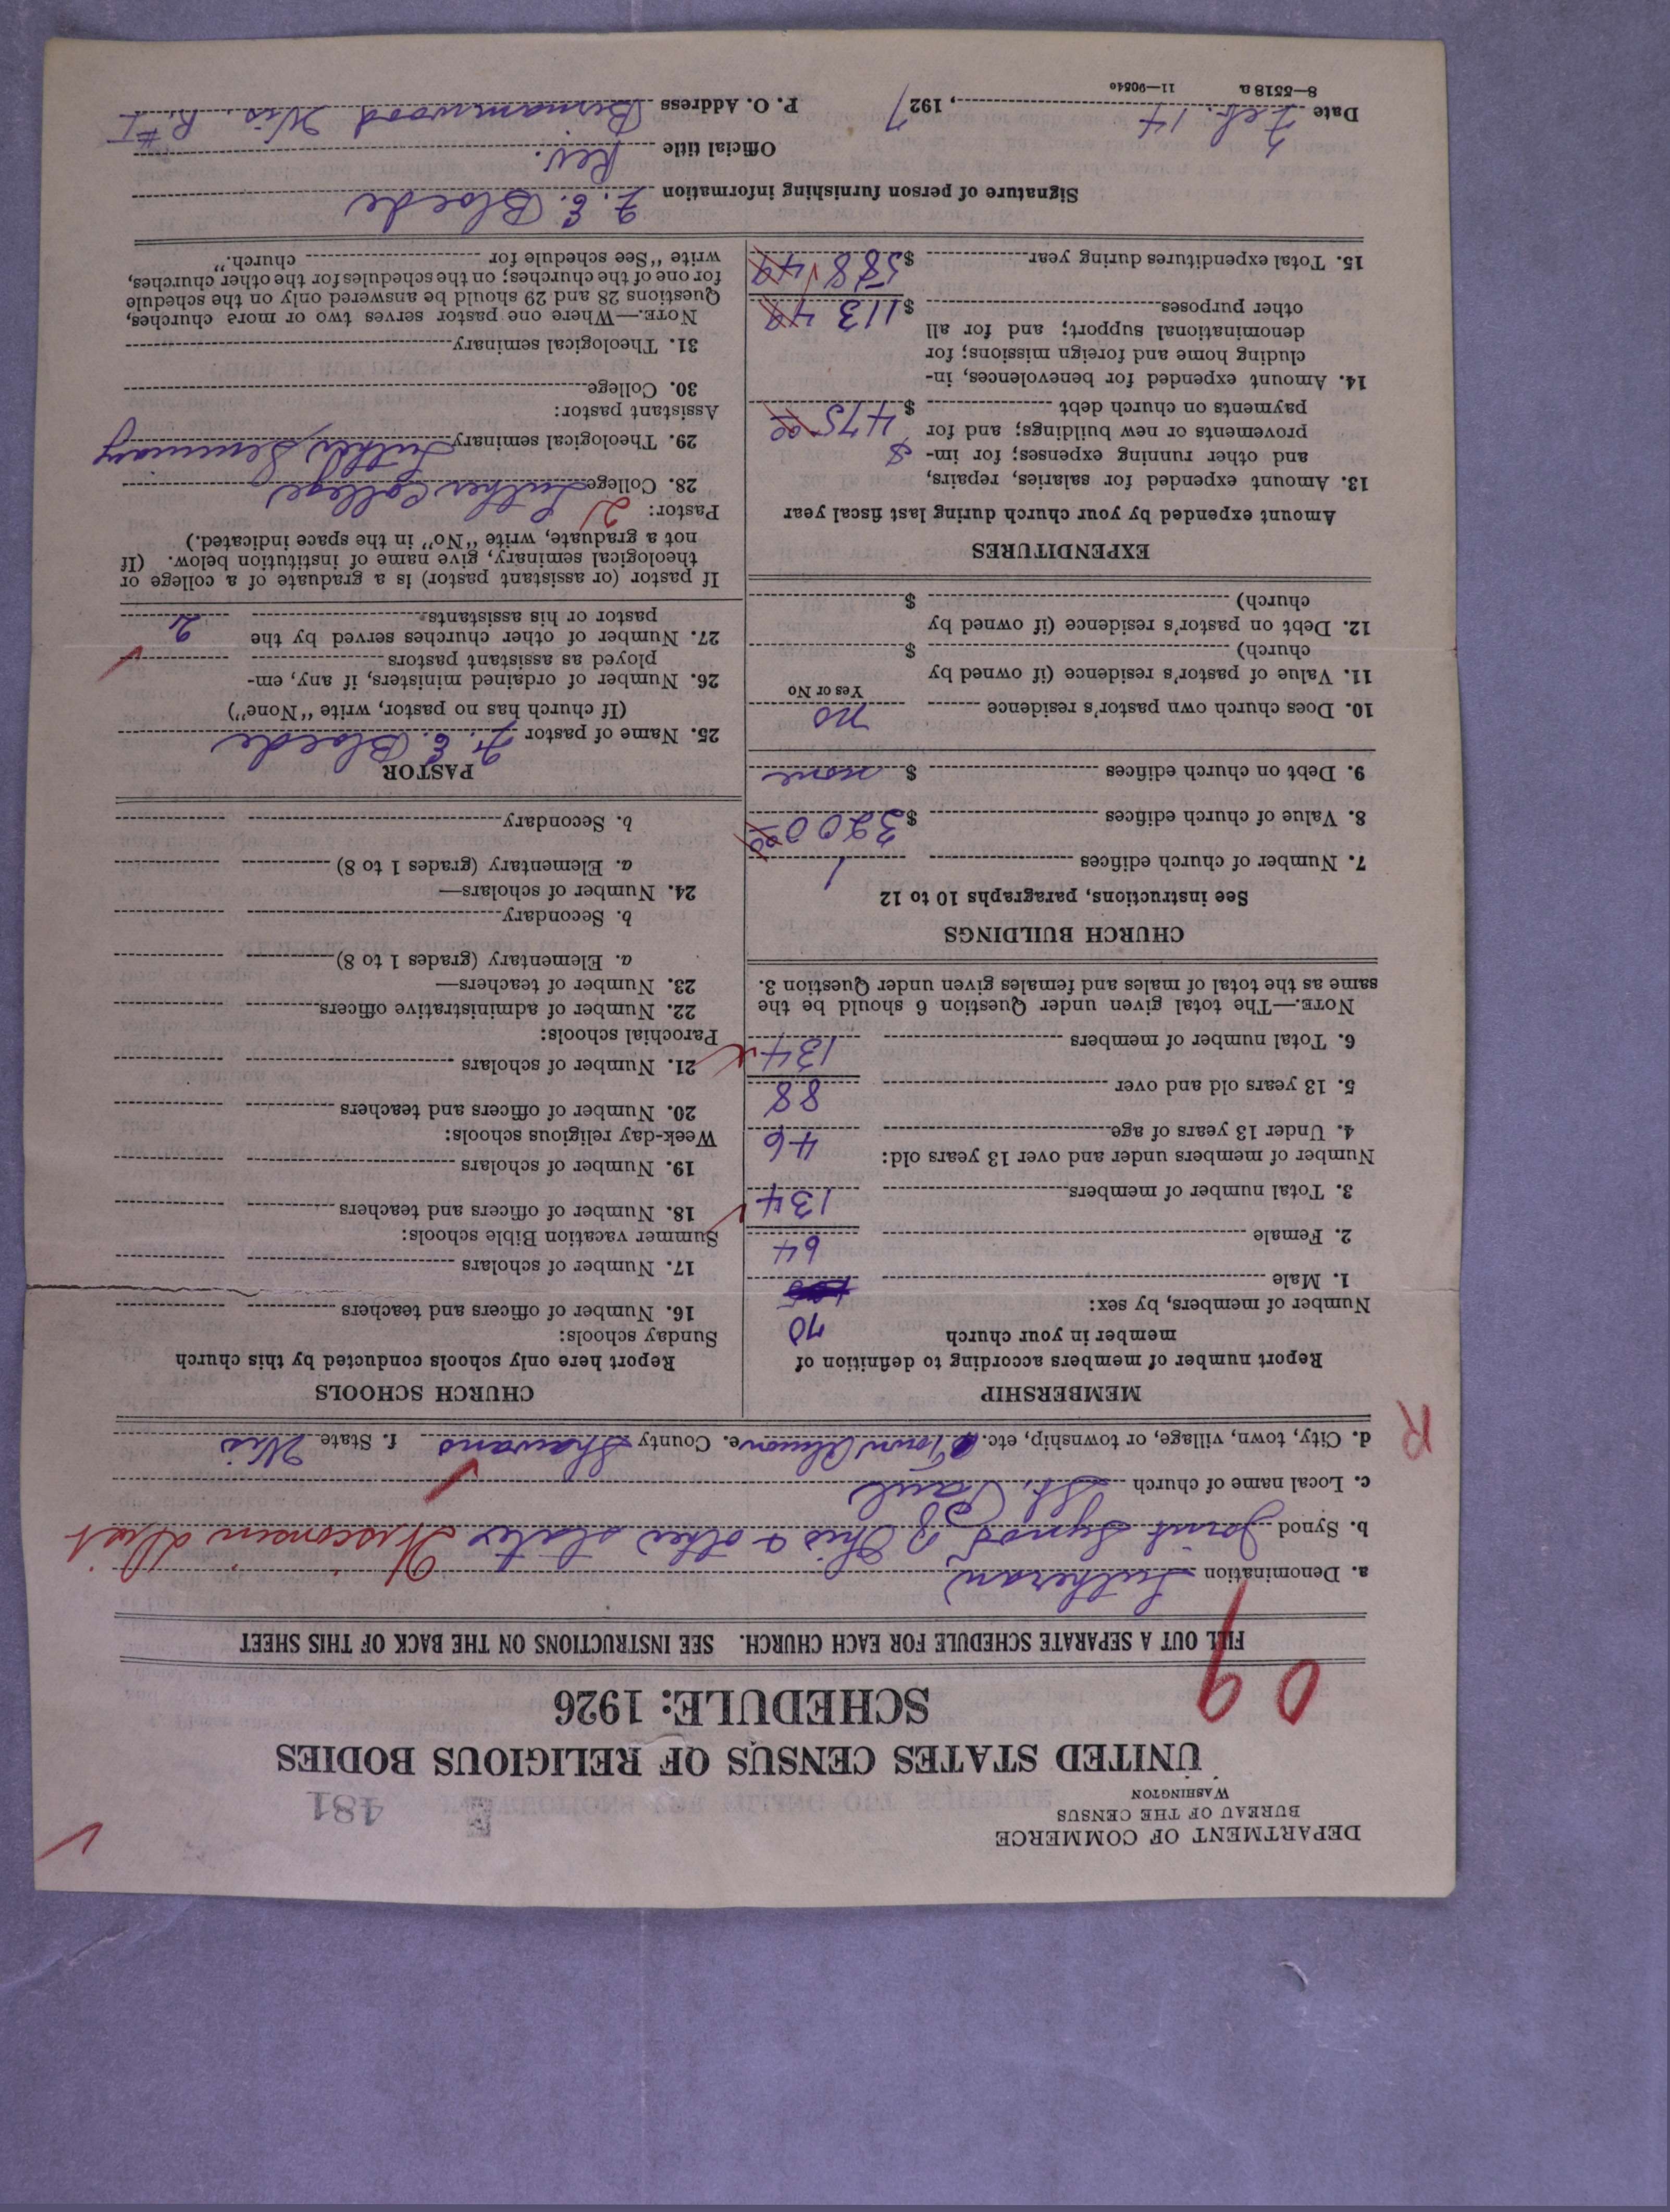 DEPARTMENT OF COMMERCE
BUREAU OF THE CENSUS
WASHINGTON
481
UNITED STATES CENSUS OF RELIGIOUS BODIES
SCHEDULE: 1926
09
FILL OUT A SEPARATE SCHEDULE FOR EACH CHURCH. SEE INSTRUCTIONS ON THE BACK OF THIS SHEET
a. Denomination Lutheran
b. Synod Joint Synod of Ohio & other states Wisconsin Dist
c. Local name of church St. Paul
d. City, town, village, or township, etc. Town Almon e. County Shawano f. State Wis
R
MEMBERSHIP
Report number of members according to definition of
member in your church
Number of members, by sex:
70
1. Male
2. Female 64
3. Total number of members 134
Number of members under and over 13 years old:
4. Under 13 years of age 46
5. 13 years old and over 88
6. Total number of members 134
NOTE.—The total given under Question 6 should be the
same as the total of males and females given under Question 3.
CHURCH BUILDINGS
See instructions, paragraphs 10 to 12
7. Number of church edifices 1
8. Value of church edifices $ 3200 00
9. Debt on church edifices $ none
10. Does church own pastor's residence no
Yes or No
11. Value of pastor's residence (if owned by
church) $
12. Debt on pastor's residence (if owned by
church) $
EXPENDITURES
Amount expended by your church during last fiscal year
13. Amount expended for salaries, repairs,
and other running expenses; for im- $
provements or new buildings; and for
payments on church debt $ 475 00
14. Amount expended for benevolences, in-
cluding home and foreign missions; for
denominational support; and for all
other purposes $ 113 49
15. Total expenditures during year $ 588 49
CHURCH SCHOOLS
Report here only schools conducted by this church
Sunday schools:
16. Number of officers and teachers
17. Number of scholars
Summer vacation Bible schools:
18. Number of officers and teachers
19. Number of scholars
Week-day religious schools:
20. Number of officers and teachers
21. Number of scholars
Parochial schools:
22. Number of administrative officers
23. Number of teachers—
a. Elementary (grades 1 to 8)
b. Secondary
24. Number of scholars—
a. Elementary (grades 1 to 8)
b. Secondary
PASTOR
25. Name of pastor F. E. Bloede
(If church has no pastor, write "None")
26. Number of ordained ministers, if any, em-
ployed as assistant pastors
27. Number of other churches served by the
pastor or his assistants 2
If pastor (or assistant pastor) is a graduate of a college or
theological seminary, give name of institution below. (If
not a graduate, write "No" in the space indicated.)
Pastor: 2
28. College Luther College
29. Theological seminary Luther Seminary
Assistant pastor:
30. College
31. Theological seminary
NOTE.—Where one pastor serves two or more churches,
Questions 28 and 29 should be answered only on the schedule
for one of the churches; on the schedules for the other churches,
write "See schedule for church."
Signature of person furnishing information F. E. Bloede
Official title Rev.
Date Feb. 14, 1927 P. O. Address Birnamwood Wis. R. #1
8—5518 a 11—9054c